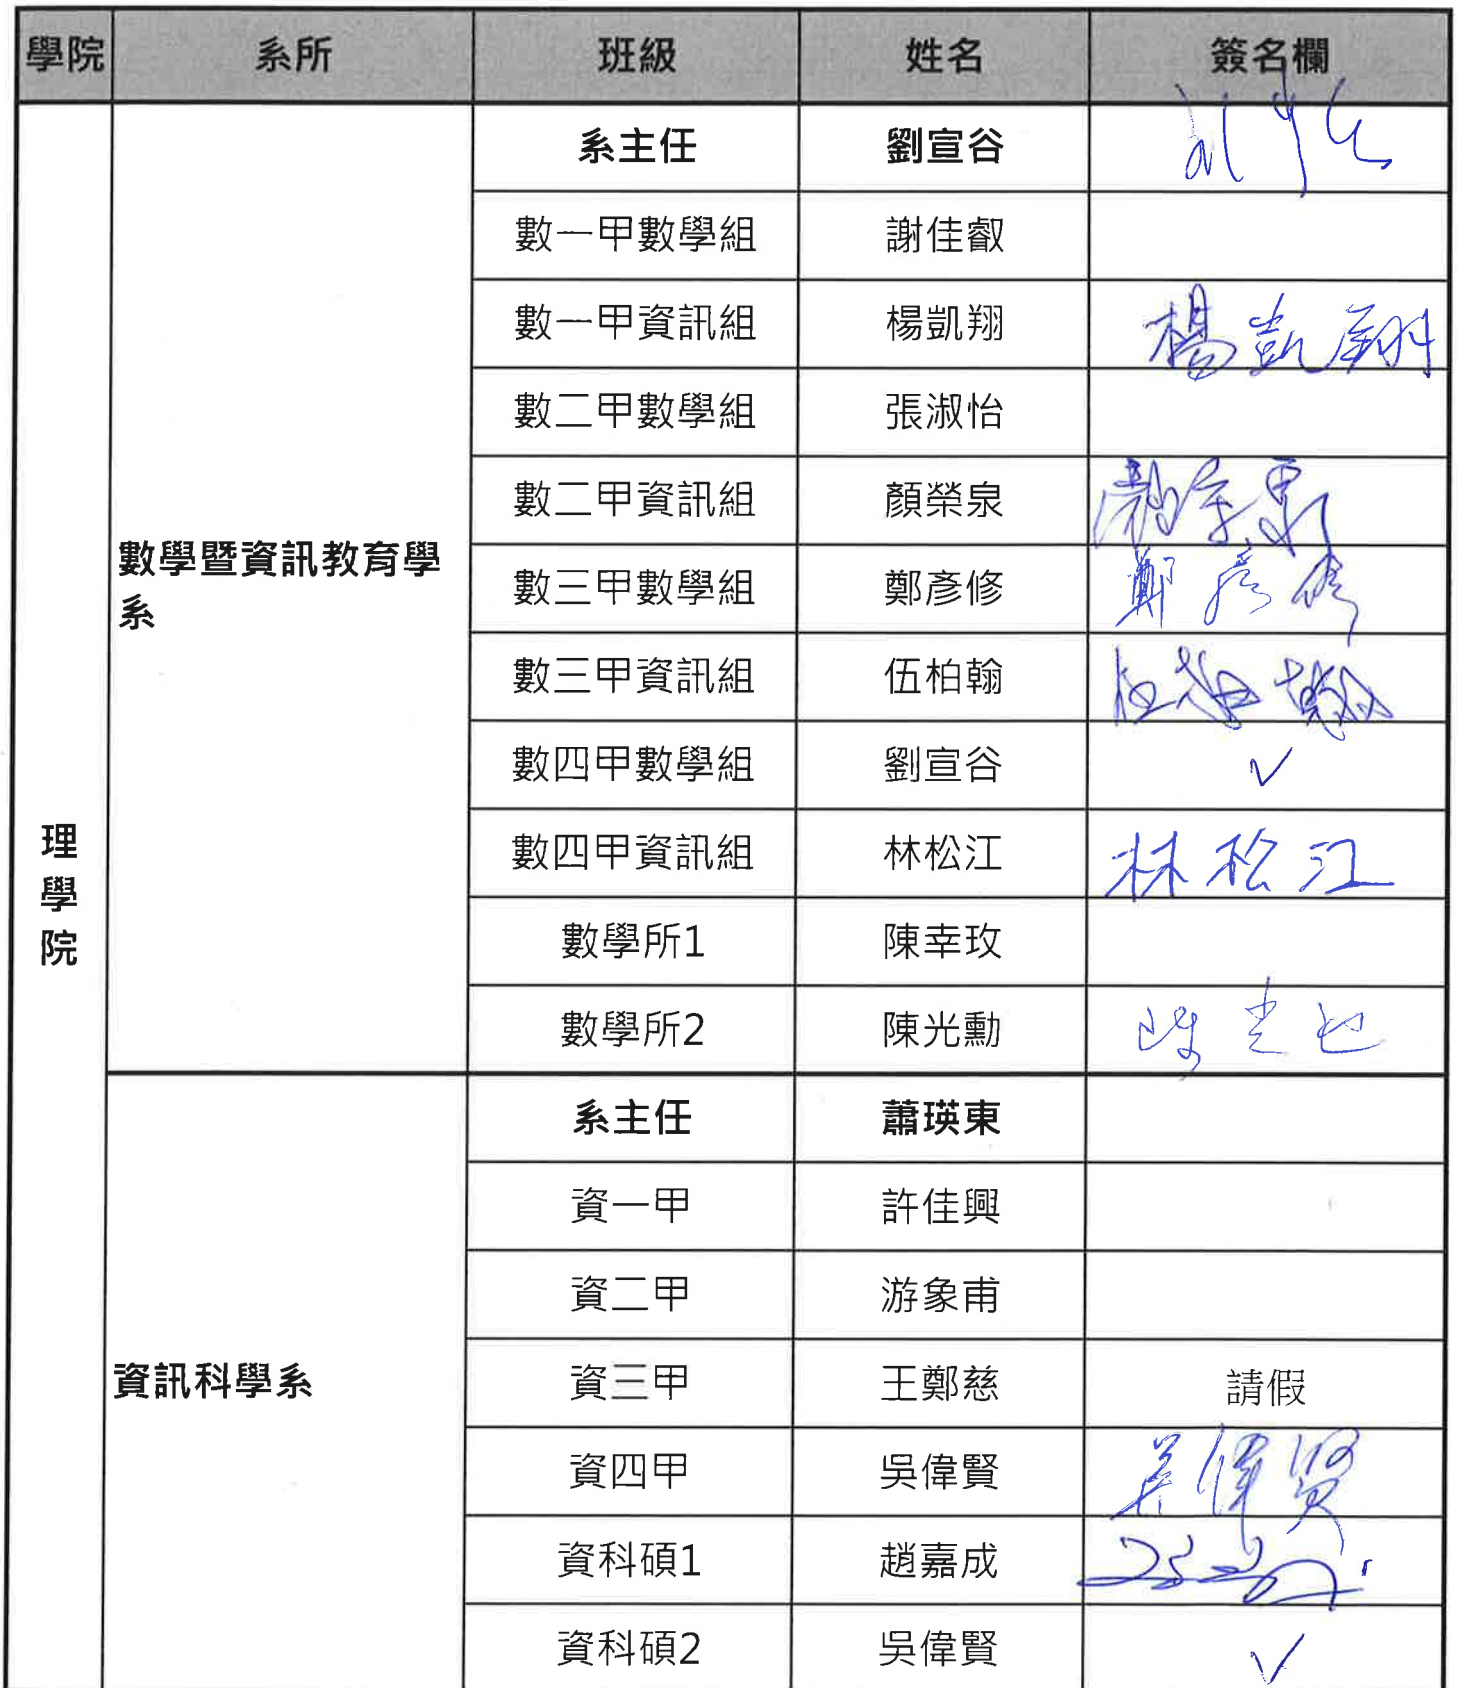 學院 系所 班級 姓名 簽名欄
理學院
數學暨資訊教育學
系
系主任 劉宣谷
數一甲數學組 謝佳叡
數一甲資訊組 楊凱翔 楊凱翔
數二甲數學組 張淑怡
數二甲資訊組 顏榮泉 顏榮泉
數三甲數學組 鄭彥修 鄭彥修
數三甲資訊組 伍柏翰 伍柏翰
數四甲數學組 劉宣谷 ✓
數四甲資訊組 林松江 林松江
數學所1 陳幸玫
數學所2 陳光勳
資訊科學系
系主任 蕭瑛東
資一甲 許佳興
資二甲 游象甫
資三甲 王鄭慈 請假
資四甲 吳偉賢 吳偉賢
資科碩1 趙嘉成
資科碩2 吳偉賢 ✓